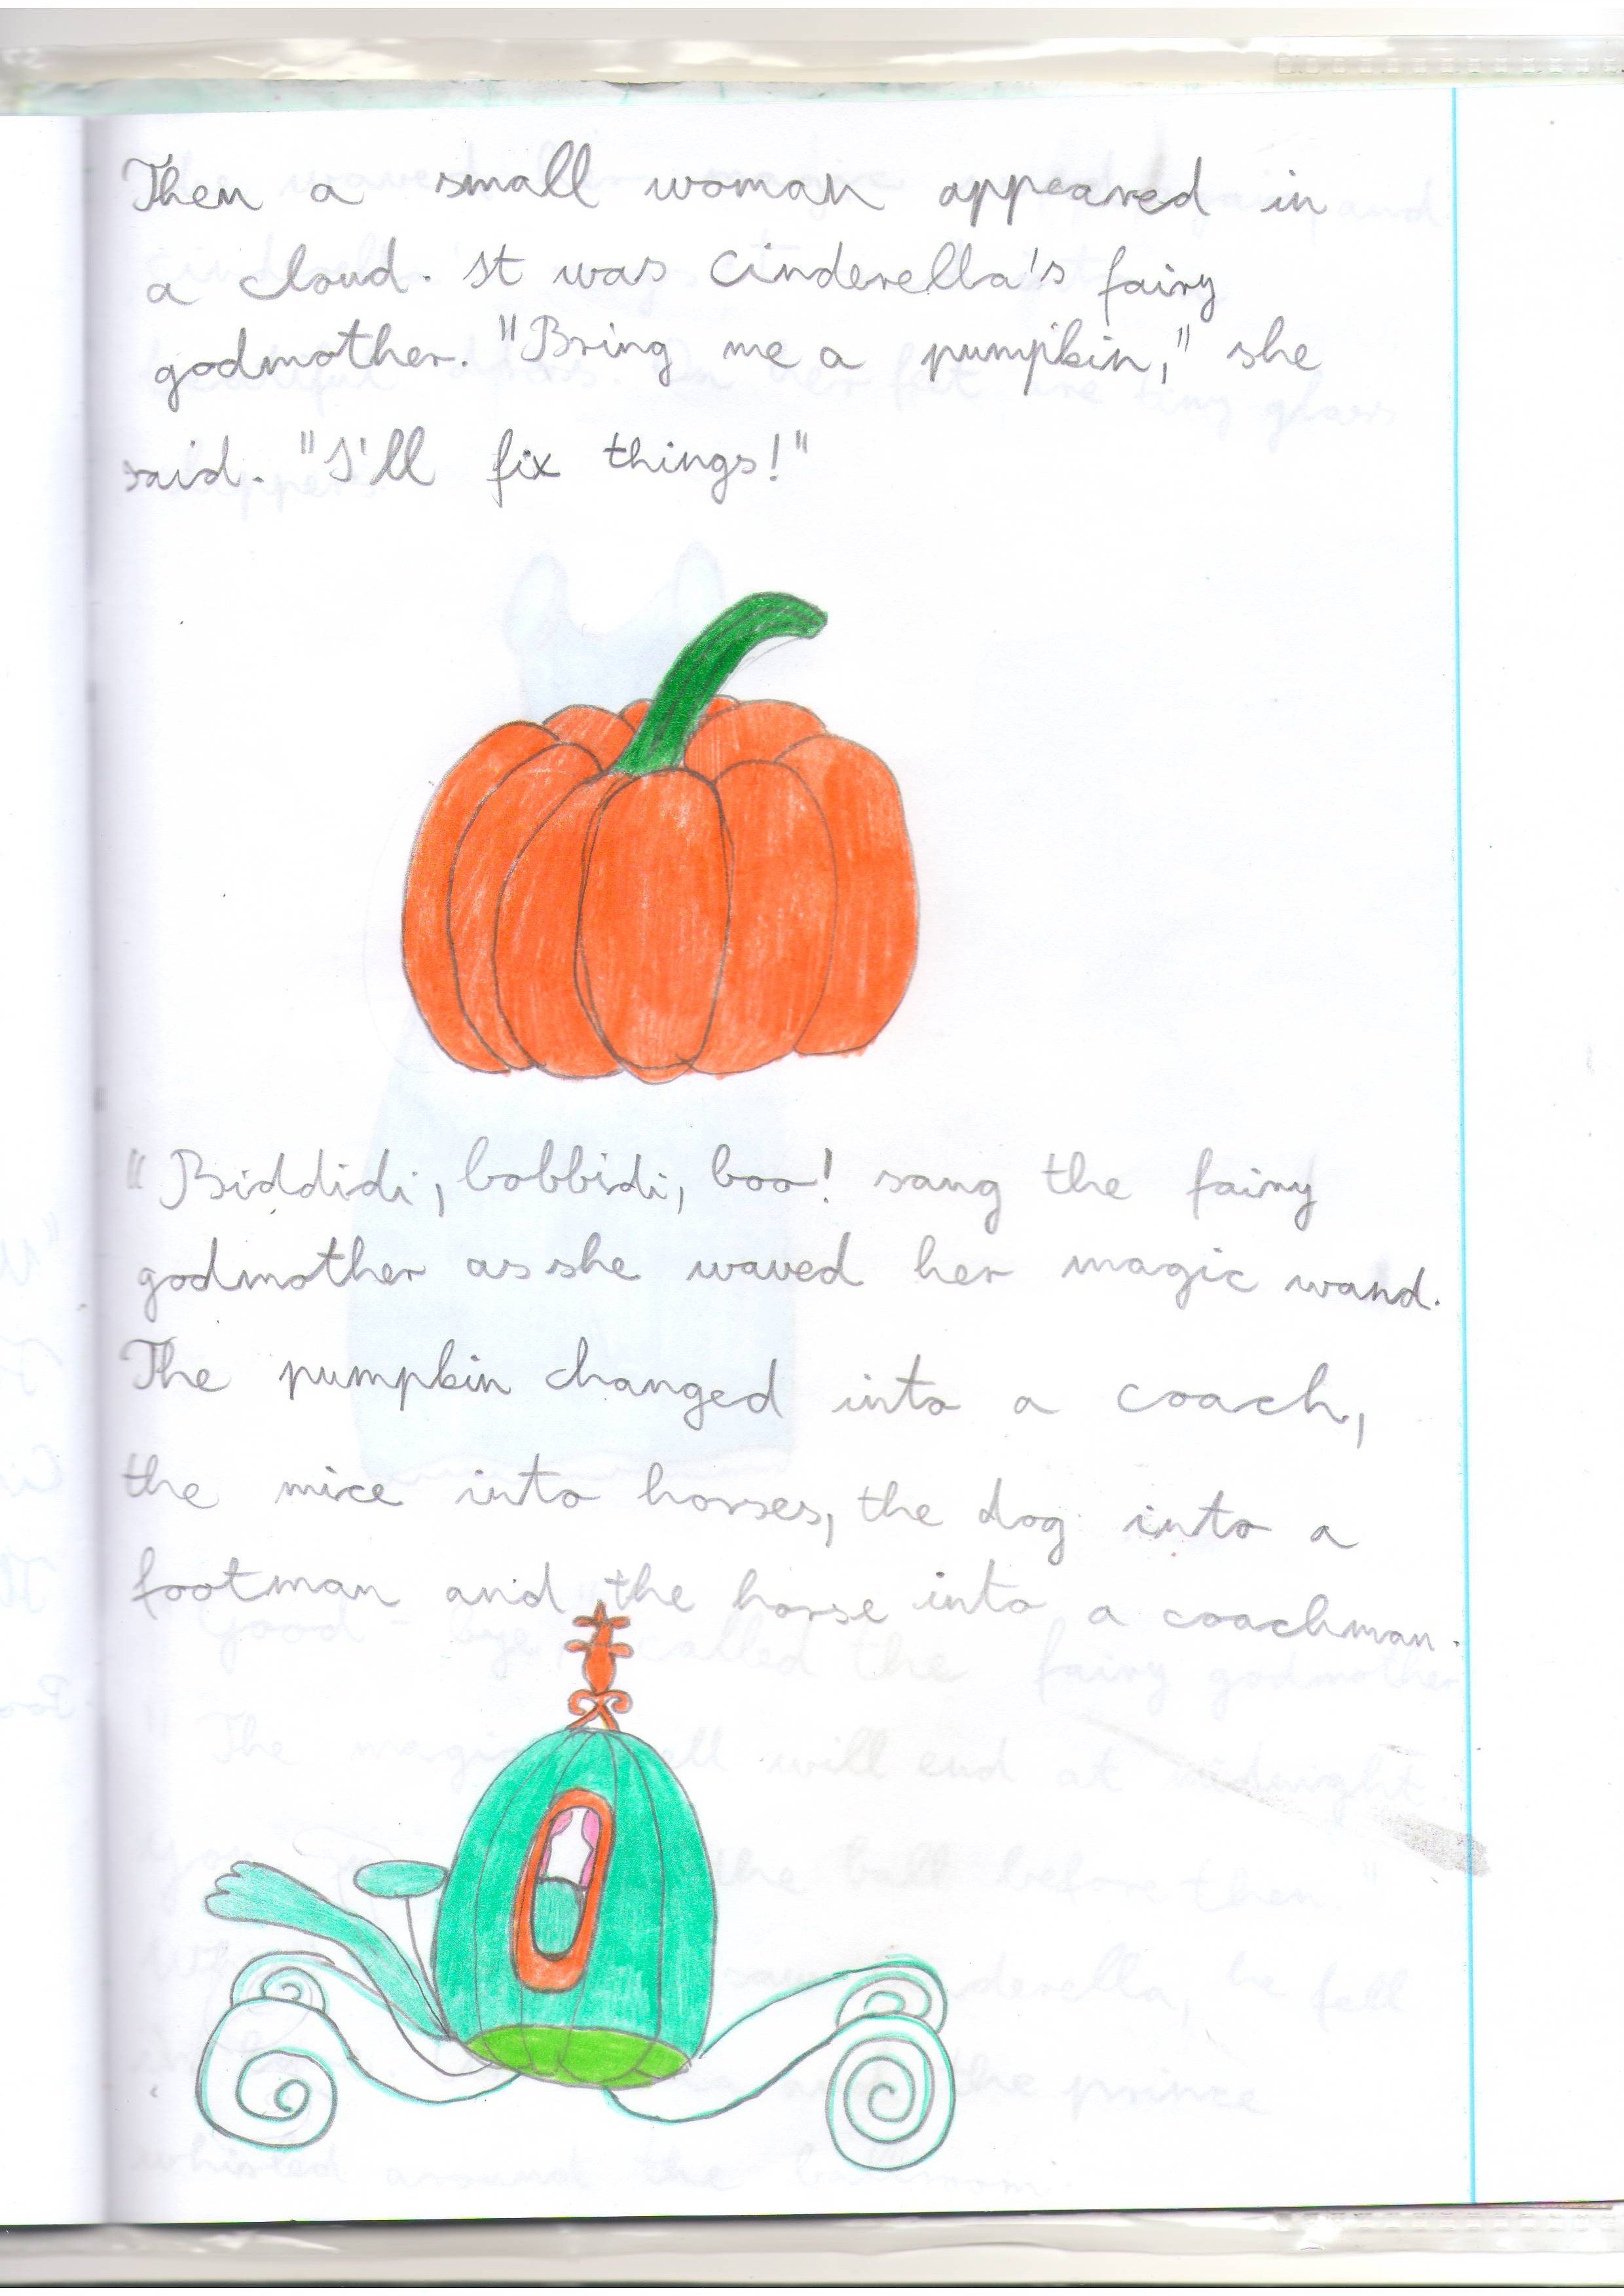 Then a small woman appeared in
a cloud. It was Cinderella's fairy
godmother. "Bring me a pumpkin," she
said. "I'll fix things!"
"Biddidi, bobbidi, boo! sang the fairy
godmother as she waved her magic wand.
The pumpkin changed into a coach,
the mice into horses, the dog into a
footman and the horse into a coachman.